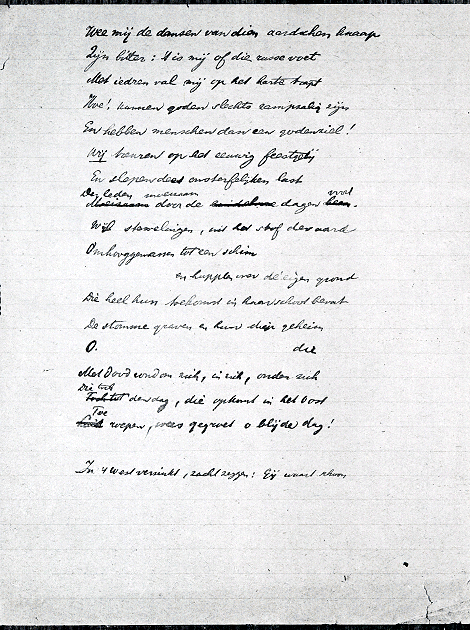 Wee mij de dansen van dien aardschen knaap
Zijn bitter: 't is mij of die ruwe voet
Met iedren val mij op het harte trapt
Hoe! kunnen goden slechts rampzalig zijn
En hebben menschen dan een godenziel!
Wij treuren op het eeuwig feestgetij
En slepen des onsterfelijken last
Der leden moeizaam voort
door de dagen heen.
Wijl stervelingen, uit het stof der aard
Omhooggewassen tot een schim
en hupplen over de eigen grond
Die heel hun toekomst in haar schoot bevat
De stomme graven en hun diep geheim
O. die
Met Dood rondom zich, in zich, onder zich
Die toch
Toch tot den dag, die opkomt in het Oost
Toe
roepen, wees gegroet o blijde dag!
In 't West verzinkt, zacht zeggen: Gij waart schoon